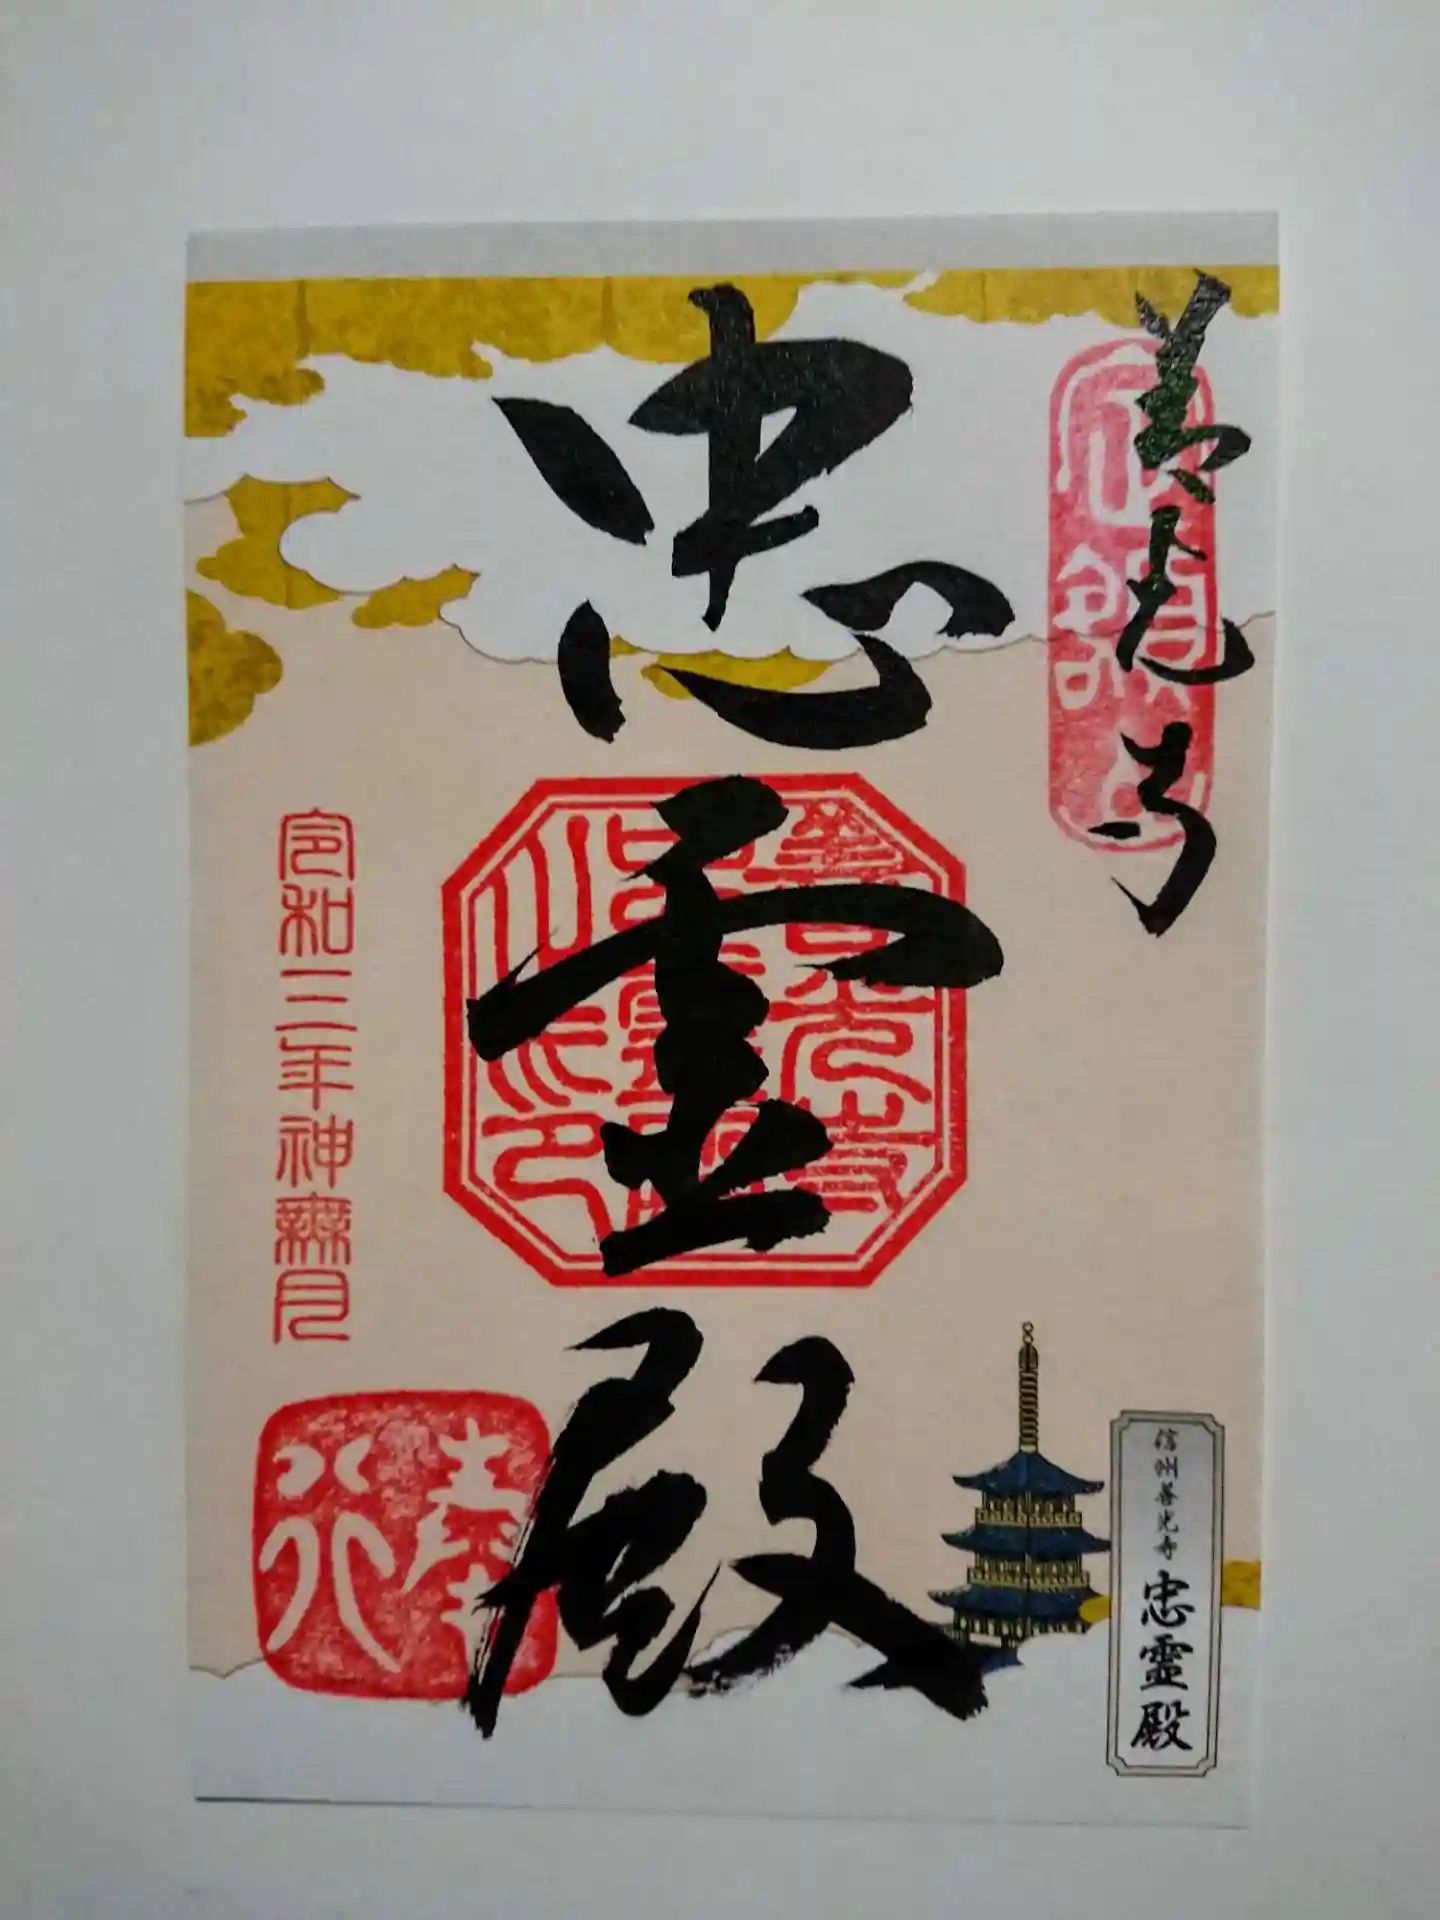 善光寺
忠霊殿
令和二年神無月
奉拝
信州善光寺
忠霊殿